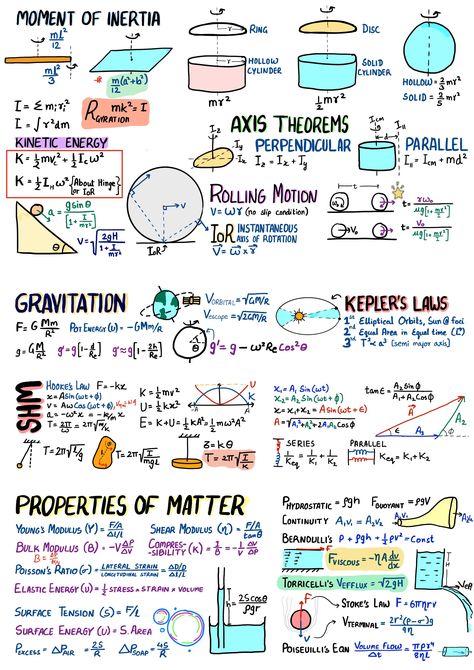 MOMENT OF INERTIA
ml²/12
ml²/3
m(a²+b²)/12
RING
HOLLOW CYLINDER
mr²
DISC
SOLID CYLINDER
½mr²
HOLLOW = 2/3 mr²
SOLID = 2/5 mr²
I = Σ mᵢrᵢ²
I = ∫r²dm
R GYRATION mk² = I
KINETIC ENERGY
K = ½mv꜀² + ½I꜀ω²
K = ½ I_H ω² {About Hinge or IOR}
AXIS THEOREMS
PERPENDICULAR
I_z = I_x + I_y
I_z
I_y
I_x
PARALLEL
I_cm
I_||
I_|| = I_cm + md²
a = gsinθ/[1+I/mr²]
θ
V = √(2gH/(1+I/mr²))
IOR
ROLLING MOTION
V = ωr (no slip condition)
IOR INSTANTANEOUS AXIS OF ROTATION
V = ω × r
t
t = rω₀/μg[1+mr²/I]
V₀
t = V₀/μg[1+mr²/I]
GRAVITATION
F = G Mm/R²
POT ENERGY (U) = -GMm/R
g = GM/R²
g' = g[1-d/Re]
g' ≈ g[1-2h/Re]
V ORBITAL = √GM/R
V escape = √2GM/R
θ
g' = g - ω²Re Cos²θ
KEPLER'S LAWS
1st Elliptical Orbits, Sun @ foci
2nd Equal Area in Equal time (L)
3rd T² ∝ a³ (semi major axis)
SHM
HOOKE'S LAW F = -kx
x = A Sin(ωt+φ)
v = Aω Cos(ωt+φ)
a = -ω²x = -k/m x
T = 2π/ω = 2π√m/k
K = ½mv²
U = ½kx²
E = K+U = ½kA² = ½mω²A²
U
K
-A
A
T = 2π√l/g
T = 2π√I/mgL
τ = kθ
T = 2π√I/k
x₁ = A₁ Sin(ωt)
x₂ = A₂ Sin(ωt+φ)
x = x₁+x₂ = A Sin(ωt+ε)
A = √A₁²+A₂²+2A₁A₂ Cosφ
tanε = A₂Sinφ/A₁+A₂Cosφ
A
A₂
ε
A₁
φ
SERIES
1/Keq = 1/K₁ + 1/K₂
PARALLEL
Keq = K₁ + K₂
PROPERTIES OF MATTER
YOUNG'S MODULUS (Y) = F/A/Δl/l
SHEAR MODULUS (η) = F/A/tanθ
BULK MODULUS (B) = -V ΔP/ΔV
COMPRESSIBILITY (K) = 1/B = -1/V ΔV/ΔP
POISSON'S RATIO (σ) = LATERAL STRAIN/LONGITUDINAL STRAIN = ΔD/D/Δl/l
ELASTIC ENERGY (U) = ½ STRESS × STRAIN × VOLUME
SURFACE TENSION (S) = F/L
SURFACE ENERGY (U) = S. AREA
P EXCESS = ΔP AIR = 2S/R ΔP SOAP = 4S/R
h = 2S cosθ/ρgr
P HYDROSTATIC = ρgh F BUOYANT = ρgV
CONTINUITY A₁V₁ = A₂V₂
BERNOULLI'S P + ρgh + ½ρv² = Const
F VISCOUS = -ηA dv/dx
TORRICELLI'S V EFFLUX = √2gH
STOKE'S LAW F = 6πηrv
V TERMINAL = 2r²(ρ-σ)g/9η
POISEUILLI'S EQN VOLUME FLOW/Δt = πpr⁴/8ηL
F
h